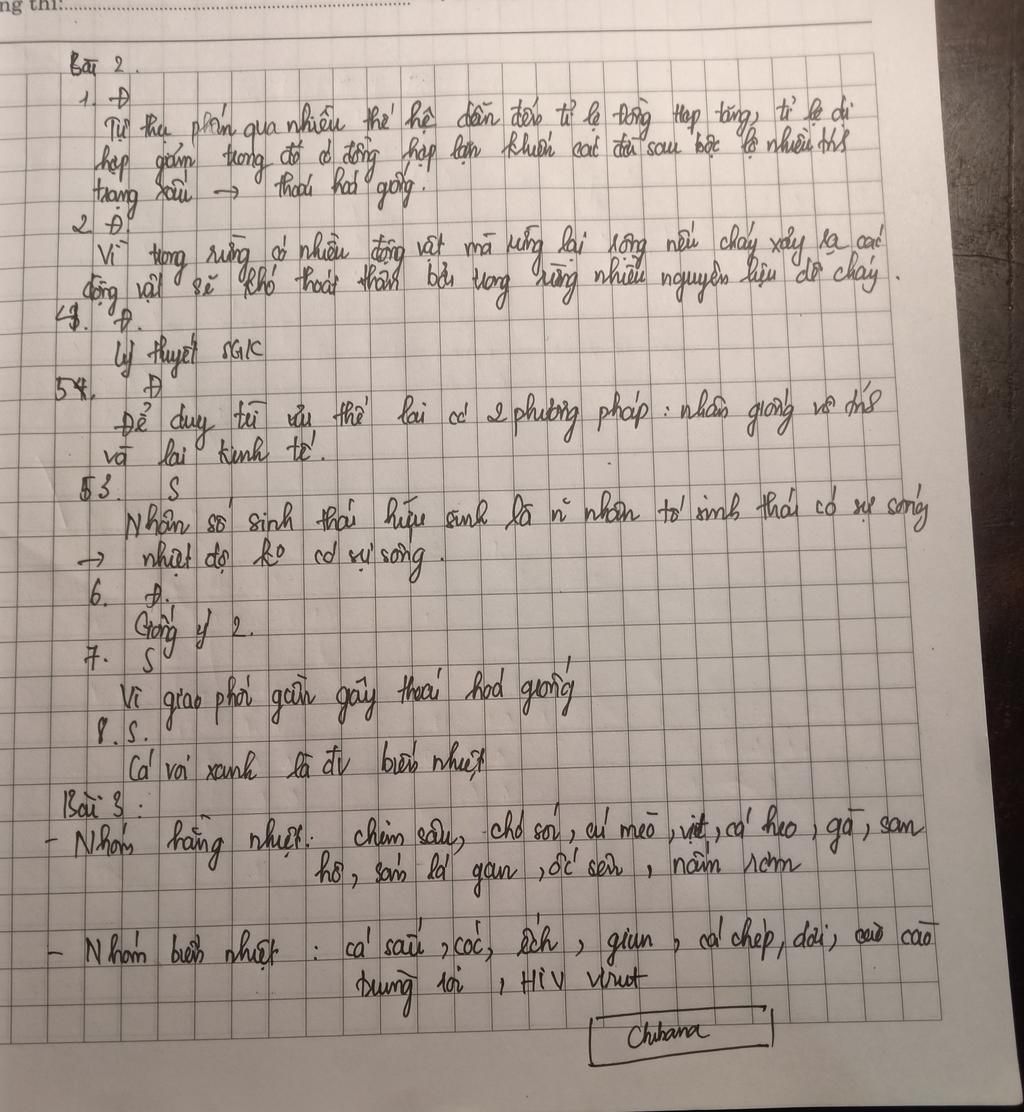 ng thi:
Bài 2.
1. Đ
Tự thụ phấn qua nhiều thế hệ dẫn đến tỉ lệ đồng hợp tăng, tỉ lệ dị
hợp giảm trong đó có đồng hợp lặn khiến các đời sau bộc lộ nhiều tính
trạng xấu → thoái hoá giống.
2. Đ
Vì trong rừng có nhiều động vật mà rừng lại rộng nếu cháy xảy ra các
động vật sẽ khó thoát thân bởi trong rừng nhiều nguyên liệu dễ cháy.
Đ.
Lý thuyết SGK
Đ
Để duy trì ưu thế lai có 2 phương pháp: nhân giống vô tính
và lai kinh tế.
3. S
Nhân số sinh thái hữu sinh là n~ nhân tố sinh thái có sự sống
→ nhiệt độ ko có sự sống.
6. Đ.
Giống ý 2.
7. S
Vì giao phối gần gây thoái hoá giống
8. S.
Cá voi xanh là đv biến nhiệt
Bài 3:
- Nhóm hằng nhiệt: chim sâu, chó sói, cú mèo, vịt, cá heo, gà, san
hô, sán lá gan, ốc sên, nấm rơm
- Nhóm biến nhiệt: cá sấu, cóc, ếch, giun, cá chép, dơi, cào cào
trùng roi, HIV virut
Chihana